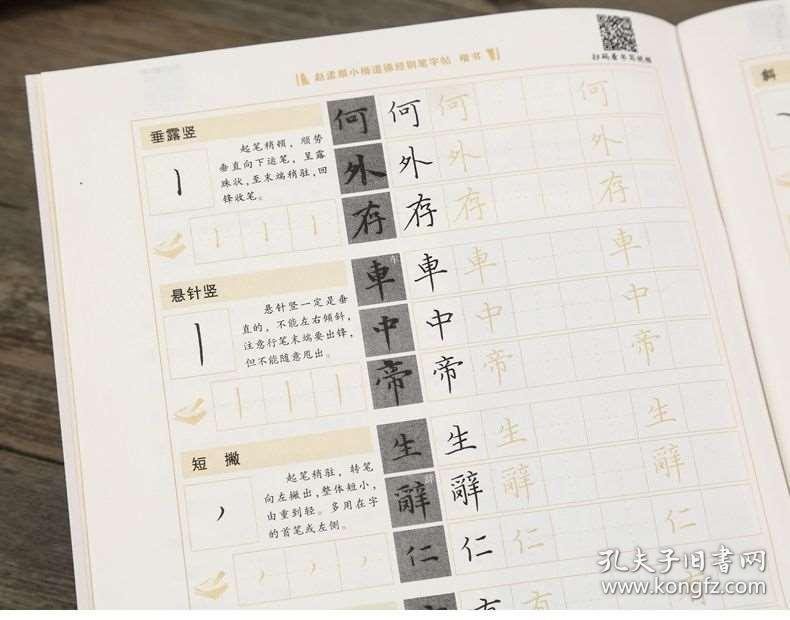 赵孟頫小楷道德经钢笔字帖 楷书
扫码看书写视频
垂露竖
起笔稍顿，顺势
垂直向下运笔，呈露
珠状，至末端稍驻，回
锋收笔。
何 何 何 何
外 外 外 外
存 存 存 存
悬针竖
悬针竖一定是垂
直的，不能左右倾斜，
注意行笔末端要出锋，
但不能随意甩出。
車 车 車 車 車
中 中 中 中
帝 帝 帝 帝
短 撇
起笔稍驻，转笔
向左撇出，整体短小，
由重到轻。多用在字
的首笔或左侧。
生 生 生 生
辭 辞 辭 辭 辭
仁 仁 仁 仁
有 有 有
斜
孔夫子旧书网
www.kongfz.com